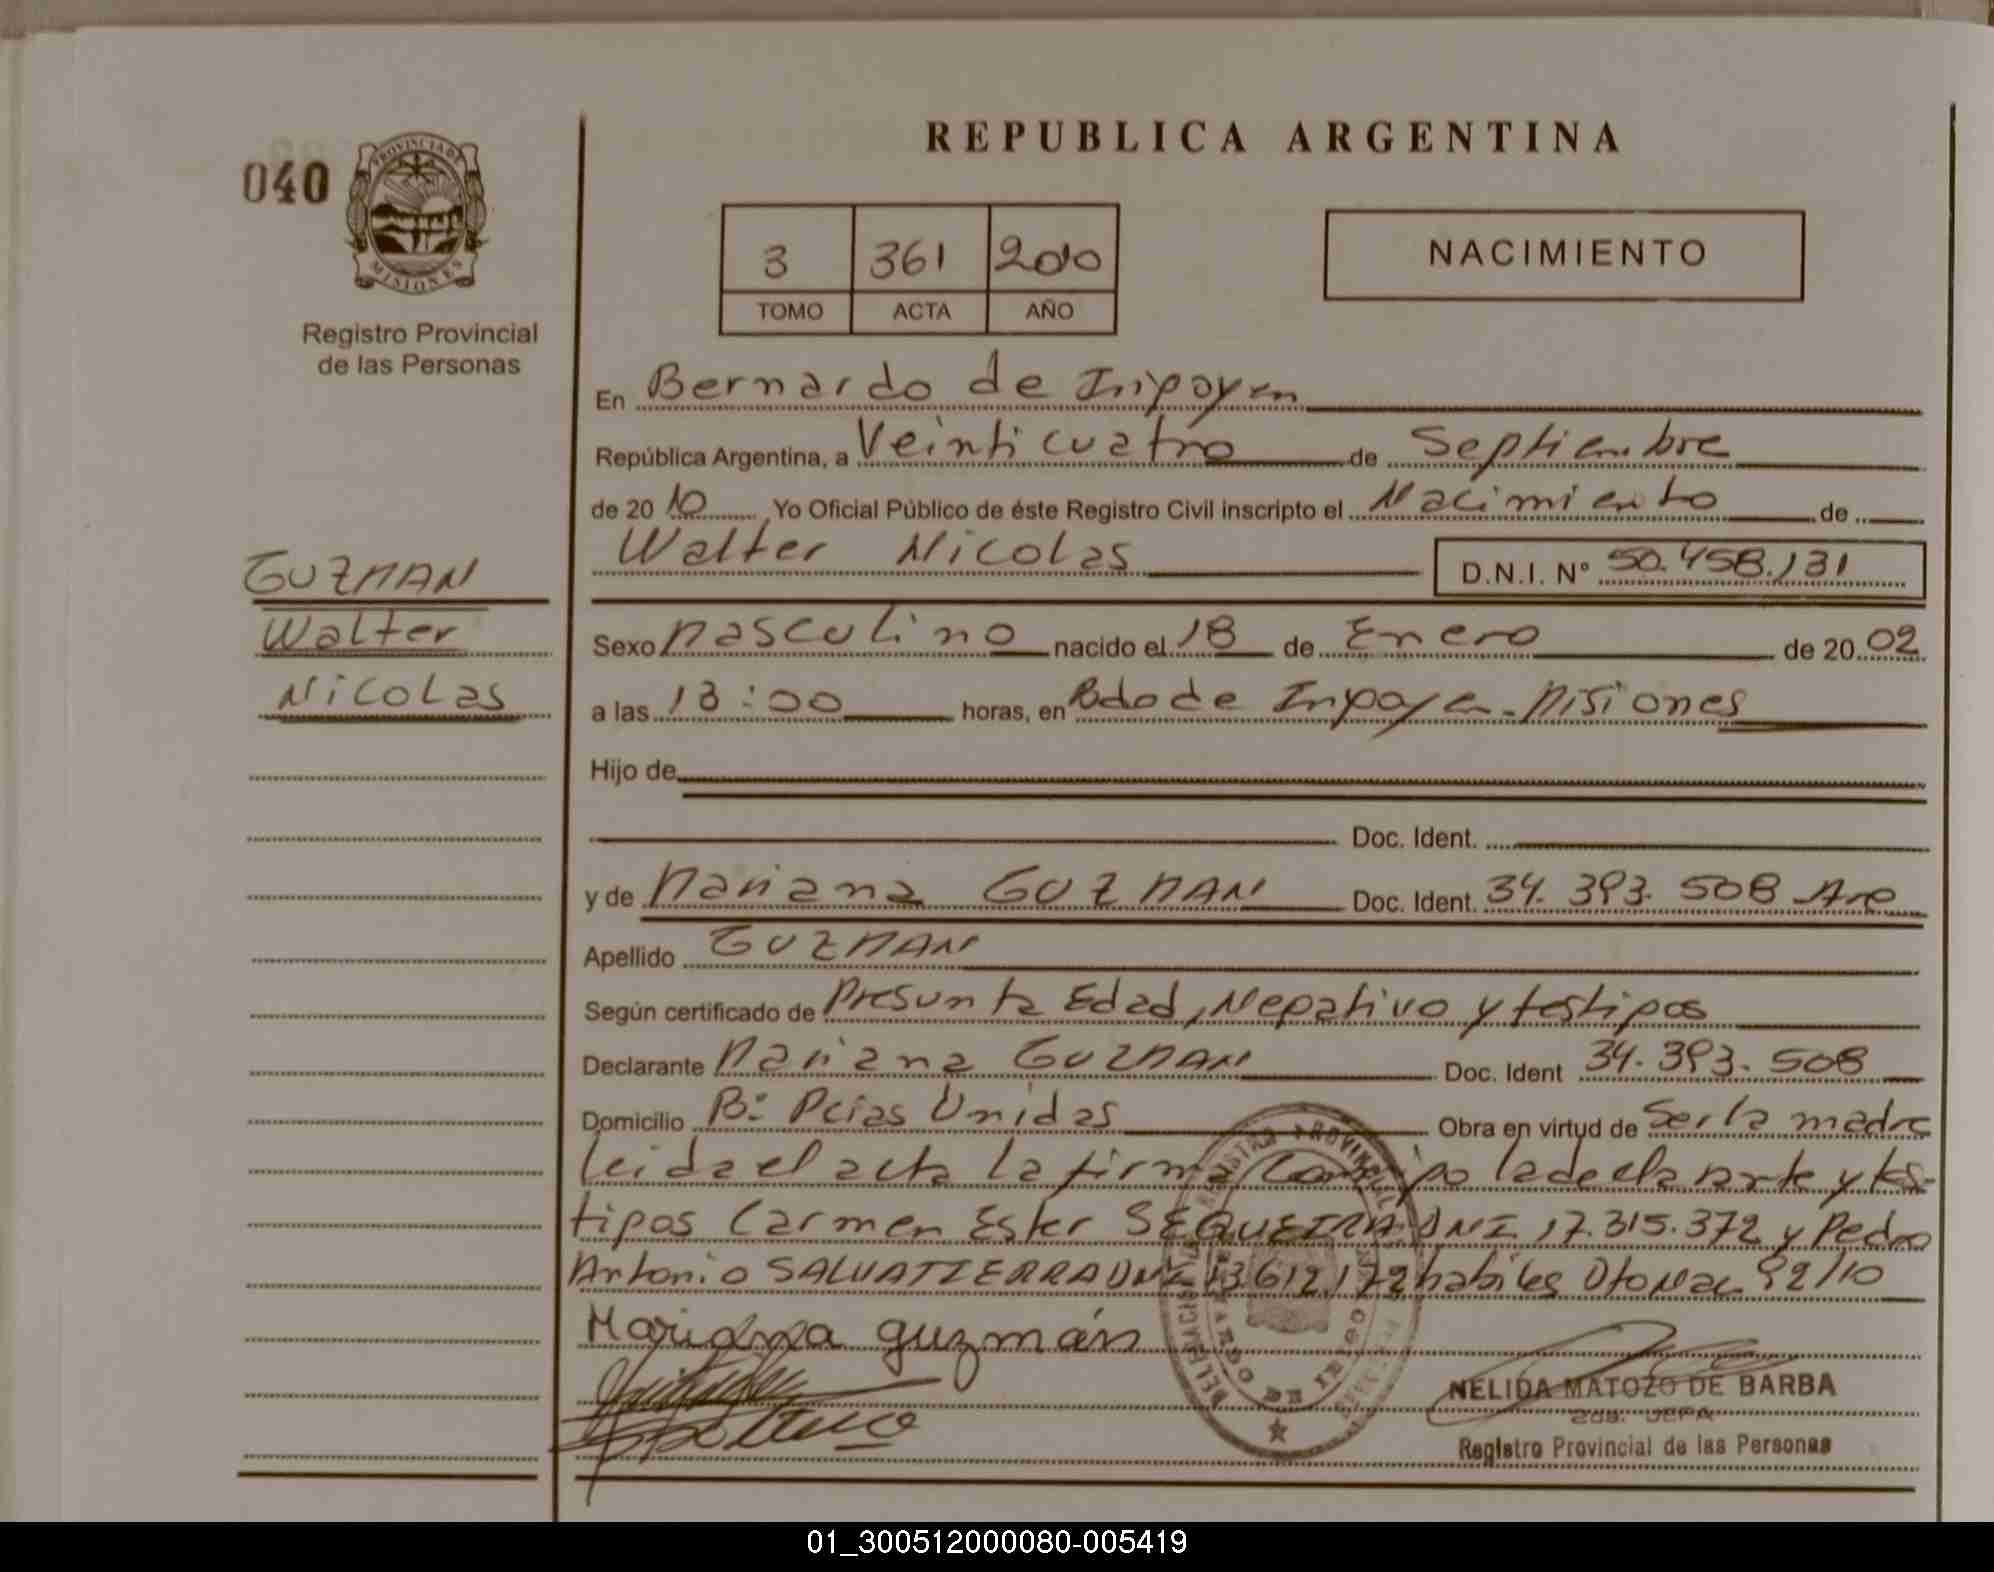 REPUBLICA ARGENTINA
040
PROVINCIA DE
MISIONES
Registro Provincial
de las Personas
3 361 2010
TOMO ACTA AÑO
NACIMIENTO
En Bernardo de Irigoyen
República Argentina, a Veinticuatro de Septiembre
de 20 10 Yo Oficial Público de éste Registro Civil inscripto el Nacimiento de
Walter Nicolas D.N.I. N° 50.458.131
GUZMAN
Walter
Nicolas
Sexo Masculino nacido el 18 de Enero de 20 02
a las 13:00 horas, en Bdo de Irigoyen - Misiones
Hijo de
Doc. Ident.
y de Mariana GUZMAN Doc. Ident. 34.393.508 Arg
Apellido GUZMAN
Según certificado de Presunta Edad, Negativo y testigos
Declarante Mariana GUZMAN Doc. Ident 34.393.508
Domicilio B: Pcias Unidas Obra en virtud de Ser la madre
leida el acta la firma conmigo la declarante y tes-
tigos Carmen Ester SEQUEIRA DNI 17.315.372 y Pedro
Antonio SALVATIERRA DNI 13.612.172 habiles
Mariana guzmán
NELIDA MATOZO DE BARBA
2da. JEFA
Registro Provincial de las Personas
01_300512000080-005419